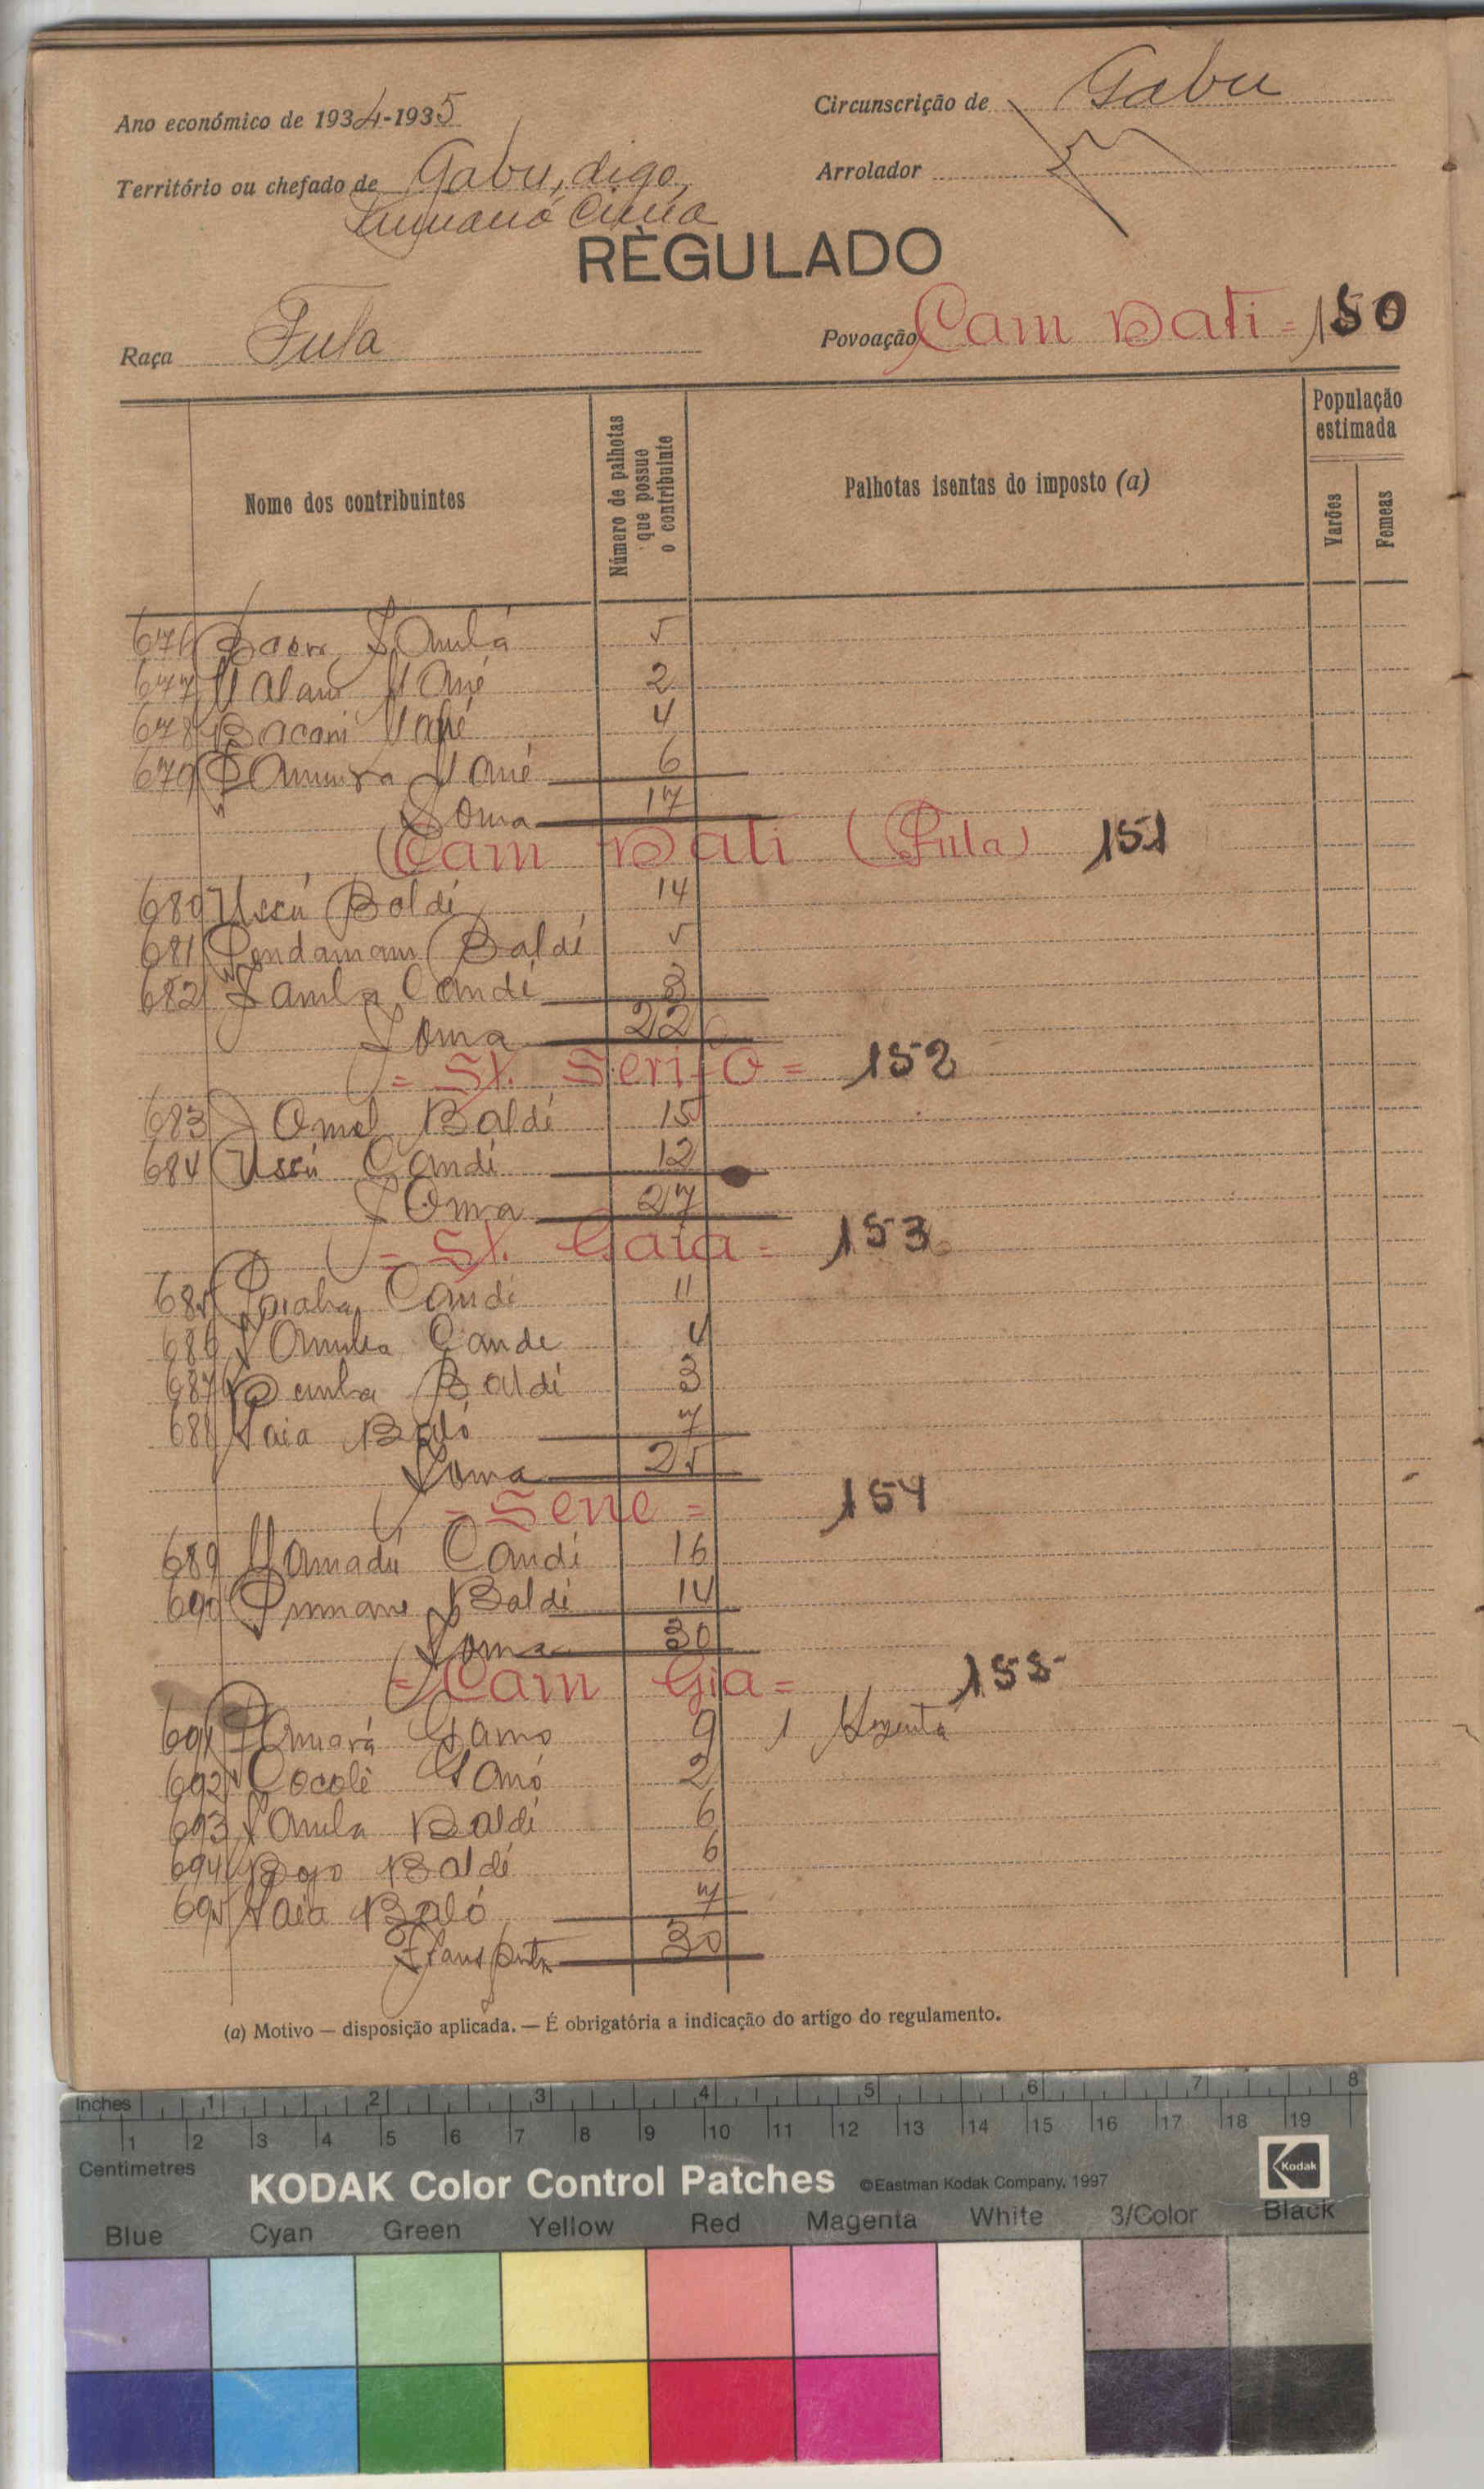 Ano económico de 1934-1935
Circunscrição de Gabu
Território ou chefado de Gabu, digo,
Arrolador
RÈGULADO
Raça Fula
Povoação Cam Bati = 150
Nome dos contribuintes
Número de palhotas que possue o contribuinte
Palhotas isentas do imposto (a)
População estimada
Varões
Femeas
676 Samba 5
677 Malam Mané 2
678 Bacari Mané 4
679 Mané 6
Soma 17
Cam Bati (Fula) 151
680 Ussú Baldé 14
681 Baldé 5
682 Samba Candé 3
Soma 22
= St. Serifo = 152
683 Baldé 15
684 Ussú Candé 12
Soma 27
= St. Gaia = 153
685 Candé 11
686 Samba Cande 4
687 Demba Baldé 3
688 Baló 7
Soma 25
= Sene = 154
689 Mamadú Candé 16
690 Baldé 14
Soma 30
= Cam Gia = 155
691 9 1
692 2
693 Samba Baldé 6
694 Baldé 6
695 Baló 7
Transporte 30
(a) Motivo — disposição aplicada. — É obrigatória a indicação do artigo do regulamento.
Inches 1 2 3 4 5 6 7 8
1 2 3 4 5 6 7 8 9 10 11 12 13 14 15 16 17 18 19
Centimetres
KODAK Color Control Patches ©Eastman Kodak Company, 1997
Kodak
Blue Cyan Green Yellow Red Magenta White 3/Color Black